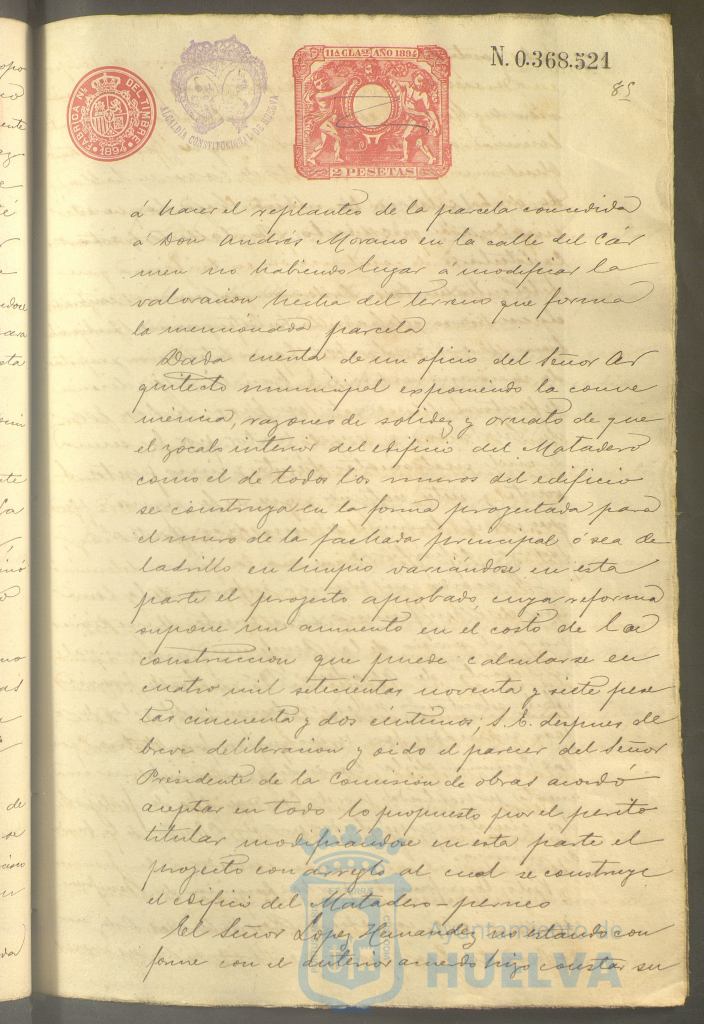 FÁBRICA NL. DEL TIMBRE
1894
ALCALDIA CONSTITUCIONAL DE HUELVA
11ª CLASE AÑO 1894
2 PESETAS
N. 0.368.521
85
á hacer el replanteo de la parcela concedida
á Don Andrés Morano en la calle del Cár
men no habiendo lugar á modificar la
valoracion hecha del terreno que forma
la mencionada parcela
Dada cuenta de un oficio del Señor Ar
quitecto municipal exponiendo la conve
niencia, razones de solidez y ornato de que
el zócalo interior del edificio del Matadero
como el de todos los muros del edificio
se construya en la forma proyectada para
el muro de la fachada principal ó sea de
ladrillo en limpio variándose en esta
parte el proyecto aprobado, cuya reforma
supone un aumento en el costo de la
construccion que puede calcularse en
cuatro mil setecientas noventa y siete pese
tas cincuenta y dos céntimos; S. E. despues de
breve deliberacion y oido el parecer del Señor
Presidente de la Comision de obras acordó
aceptar en todo lo propuesto por el perito
titular modificándose en esta parte el
proyecto con arreglo al cual se construye
el edificio del Matadero-perneo
El Señor Lopez Hernandez no estando con
forme con el anterior acuerdo hizo constar su
Ayuntamiento de
HUELVA